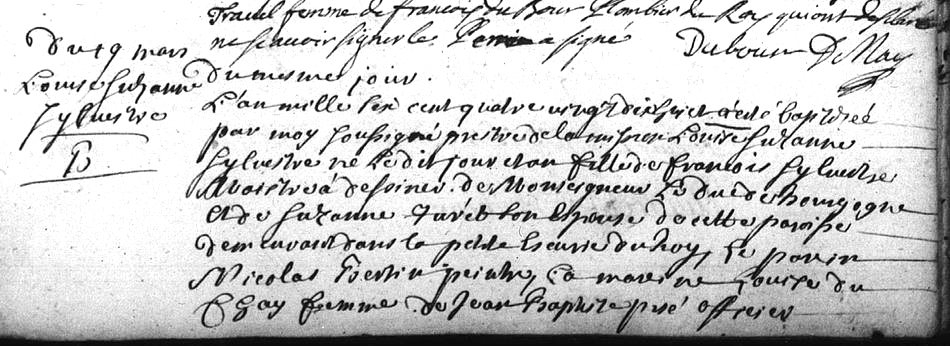 femme de francois du Bour plombier du Roy qui ont declare
ne scavoir signer le signé Dubour De Nay
Du 19 mars
Louise Suzanne
Sylvestre
B
Du mesme jour.
L'an mille six cent quatre vingt dix huit a esté baptisée
par moy soussigné prestre de la mission Louise Suzanne
Sylvestre ne le dit jour et an fille de francois Sylvestre
Maistre a dessiner de Monseigneur Le duc de bourgogne
Et de Suzanne son Espouse de cette paroisse
demeurant dans la petite Escurie du Roy, Le parin
Nicolas Bertin peintre, La mareine Louise du
femme de Jean Baptiste officier